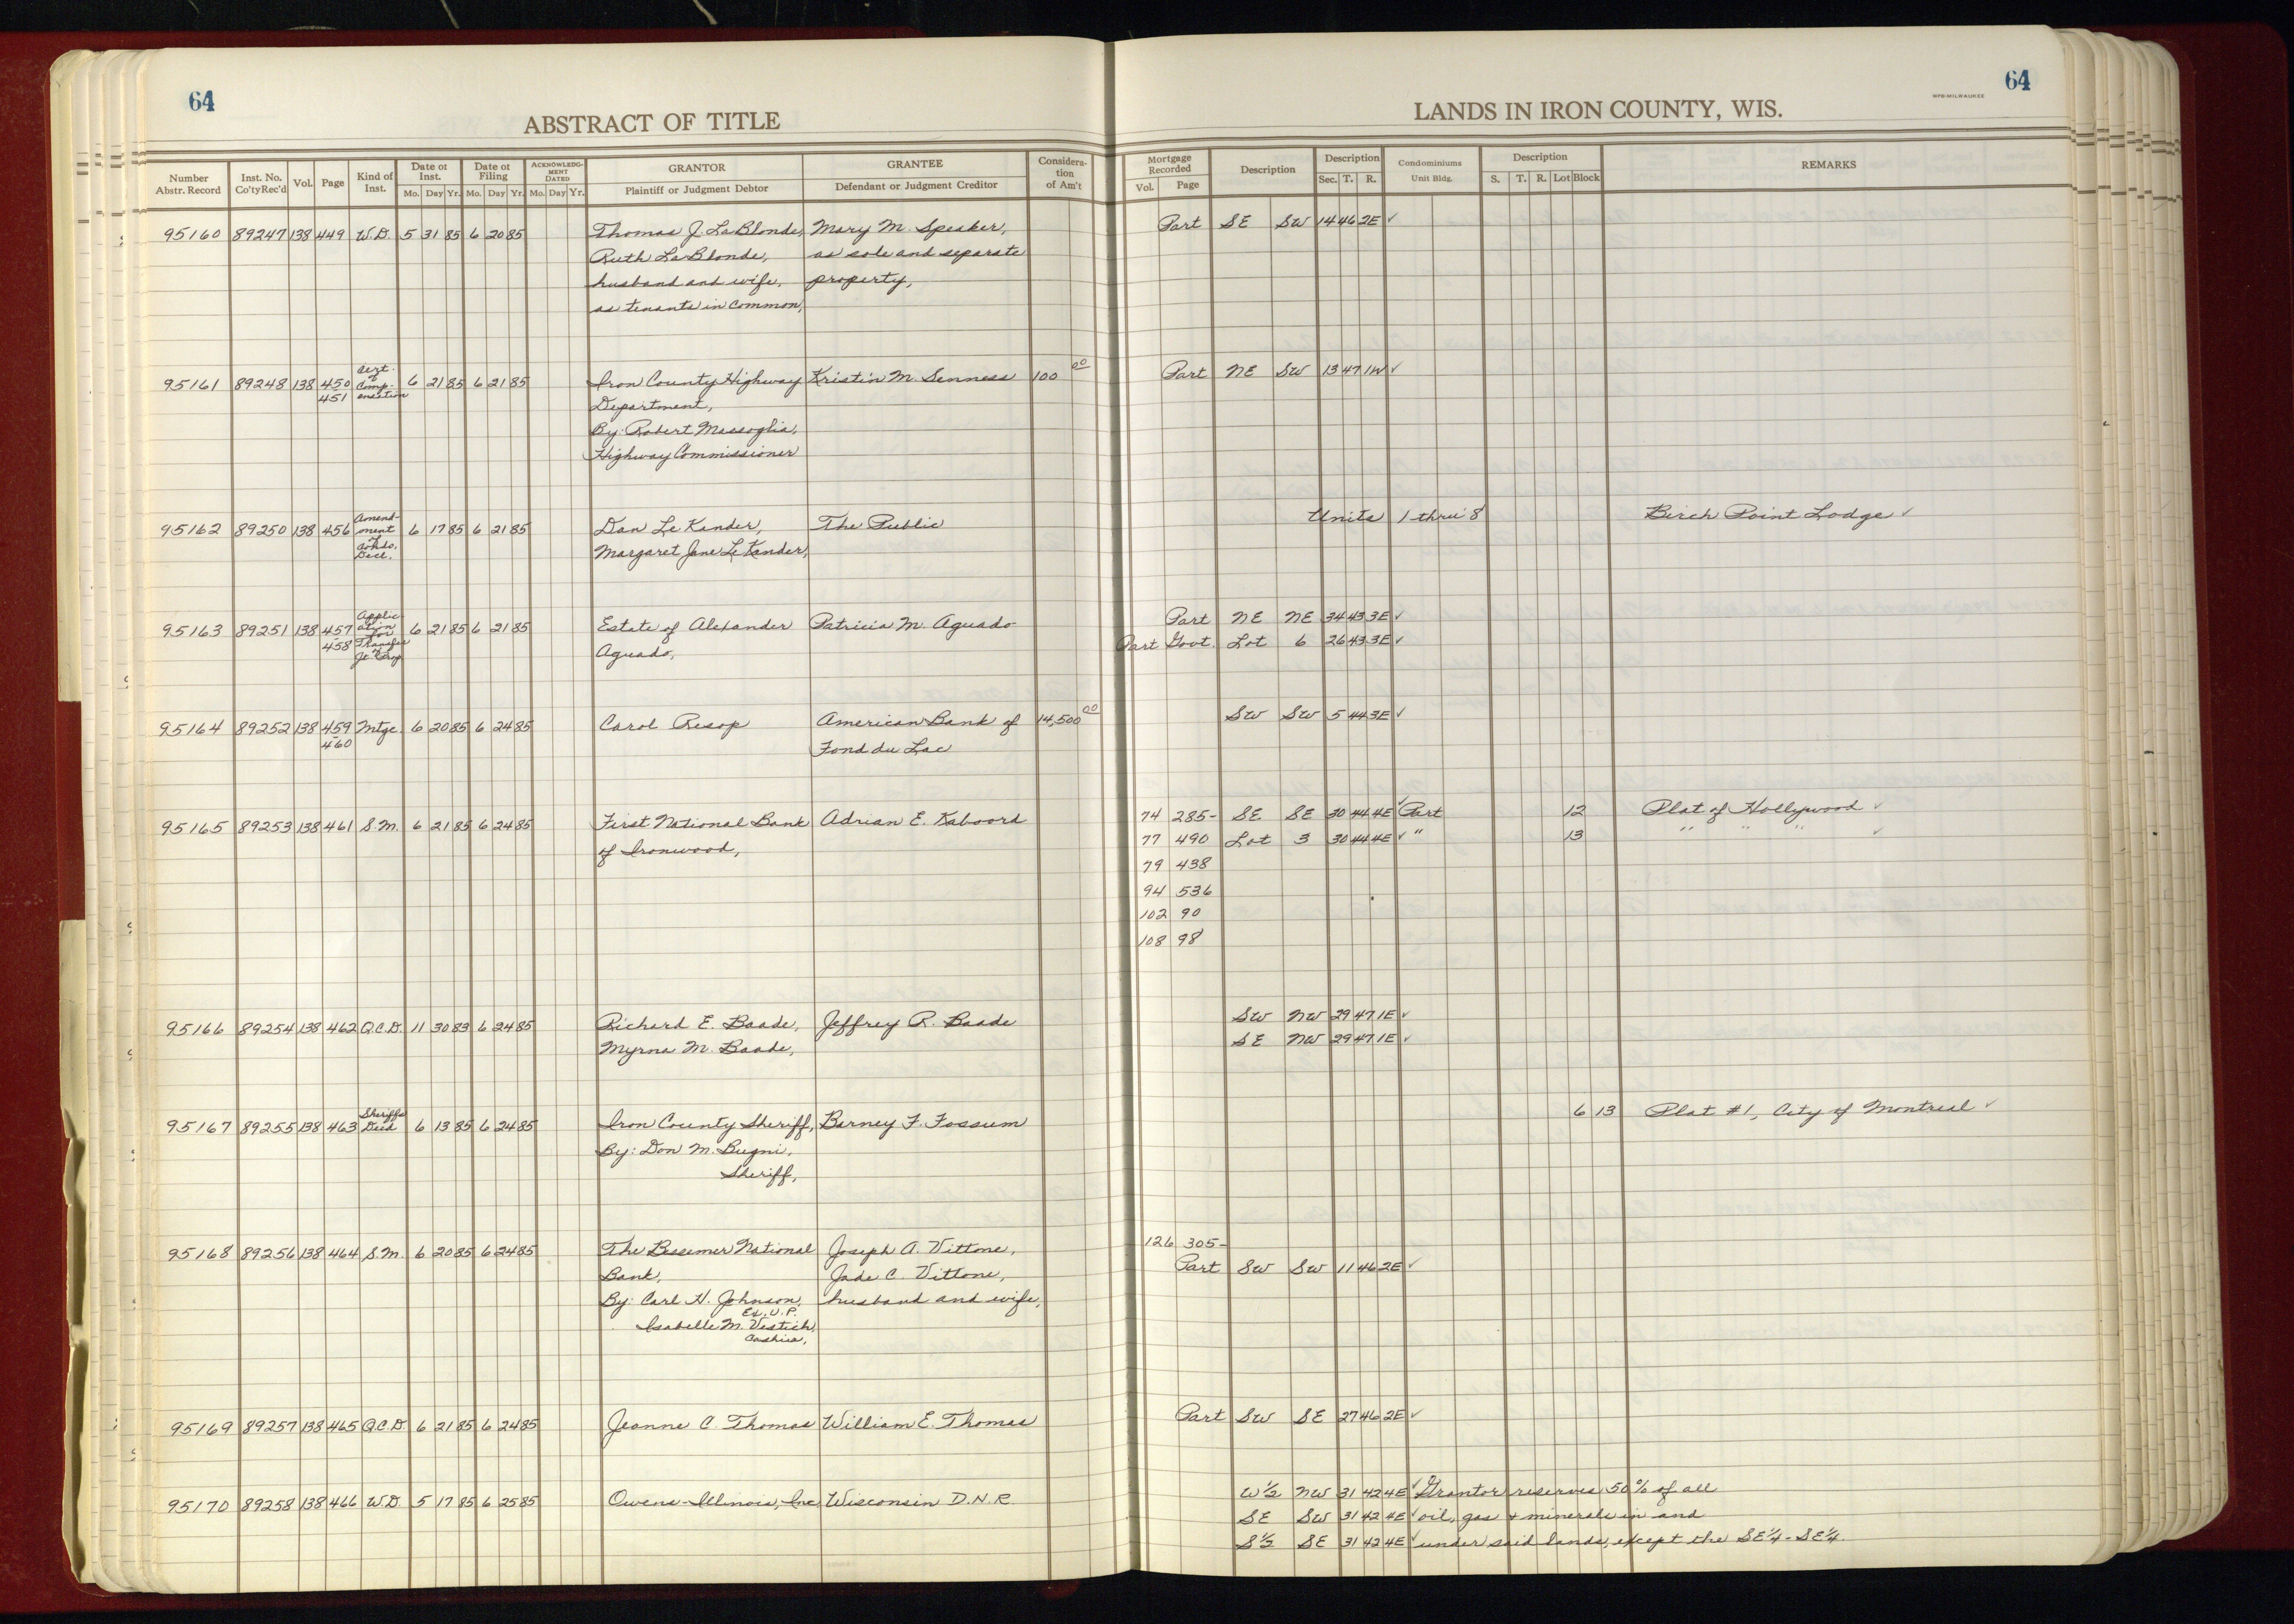 64
ABSTRACT OF TITLE
Number Abstr. Record | Inst. No. Co'ty Rec'd | Vol. | Page | Kind of Inst. | Date of Inst. Mo. Day Yr. | Date of Filing Mo. Day Yr. | ACKNOWLEDGMENT DATED Mo. Day Yr. | GRANTOR Plaintiff or Judgment Debtor | GRANTEE Defendant or Judgment Creditor | Consideration of Am't
95160 89247 138 449 W.D. 5 31 85 6 20 85 Thomas J. LaBlonde, Mary M. Speaker,
Ruth LaBlonde, as sole and separate
husband and wife, property,
as tenants in common,
95161 89248 138 450 451 Cert. of Compensation 6 21 85 6 21 85 Iron County Highway Kristin M. Senness 100 00
Department,
By: Robert Massoglia,
Highway Commissioner
95162 89250 138 456 Amendment of Condo. Decl. 6 17 85 6 21 85 Dan LeKander, The Public
Margaret Jane LeKander,
95163 89251 138 457 - 458 Application for Transfer of Jt. Prop 6 21 85 6 21 85 Estate of Alexander Patricia M. Aguado
Aguado,
95164 89252 138 459 - 460 Mtge. 6 20 85 6 24 85 Carol Resop American Bank of 14,500 00
Fond du Lac
95165 89253 138 461 S.M. 6 21 85 6 24 85 First National Bank Adrian E. Kaboord
of Ironwood,
95166 89254 138 462 Q.C.D. 11 30 83 6 24 85 Richard E. Baade, Jeffrey R. Baade
Myrna M. Baade,
95167 89255 138 463 Sheriffs Deed 6 13 85 6 24 85 Iron County Sheriff, Barney F. Fossum
By: Don M. Bugni,
Sheriff,
95168 89256 138 464 S.M. 6 20 85 6 24 85 The Bessemer National Joseph A. Vittone,
Bank, Jade C. Vittone,
By: Carl H. Johnson, husband and wife,
Ex. V.P.
Isabelle M. Vestich,
Cashier,
95169 89257 138 465 Q.C.D. 6 21 85 6 24 85 Jeanne C. Thomas William E. Thomas
95170 89258 138 466 W.D. 5 17 85 6 25 85 Owens-Illinois, Inc Wisconsin D.N.R.
64
WPB-MILWAUKEE
LANDS IN IRON COUNTY, WIS.
Mortgage Recorded Vol. Page | Description | Description Sec. T. R. | Condominiums Unit Bldg. | Description S. T. R. Lot Block | REMARKS
Part SE SW 14 46 2E ✓
Part NE SW 13 47 1W ✓
Units 1 thru 8 Birch Point Lodge ✓
Part NE NE 34 43 3E ✓
Part Govt. Lot 6 26 43 3E ✓
SW SW 5 44 3E ✓
74 285- SE SE 30 44 4E ✓ Part 12 Plat of Hollywood ✓
77 490 Lot 3 30 44 4E ✓ " 13 " " " ✓
79 438
94 536
102 90
108 98
SW NW 29 47 1E ✓
SE NW 29 47 1E ✓
6 13 Plat #1, City of Montreal ✓
126 305-
Part SW SW 11 46 2E ✓
Part SW SE 27 46 2E ✓
W½ NW 31 42 4E ✓ Grantor reserves 50% of all
SE SW 31 42 4E ✓ oil, gas + minerals in and
S½ SE 31 42 4E ✓ under said lands, except the SE¼-SE¼.